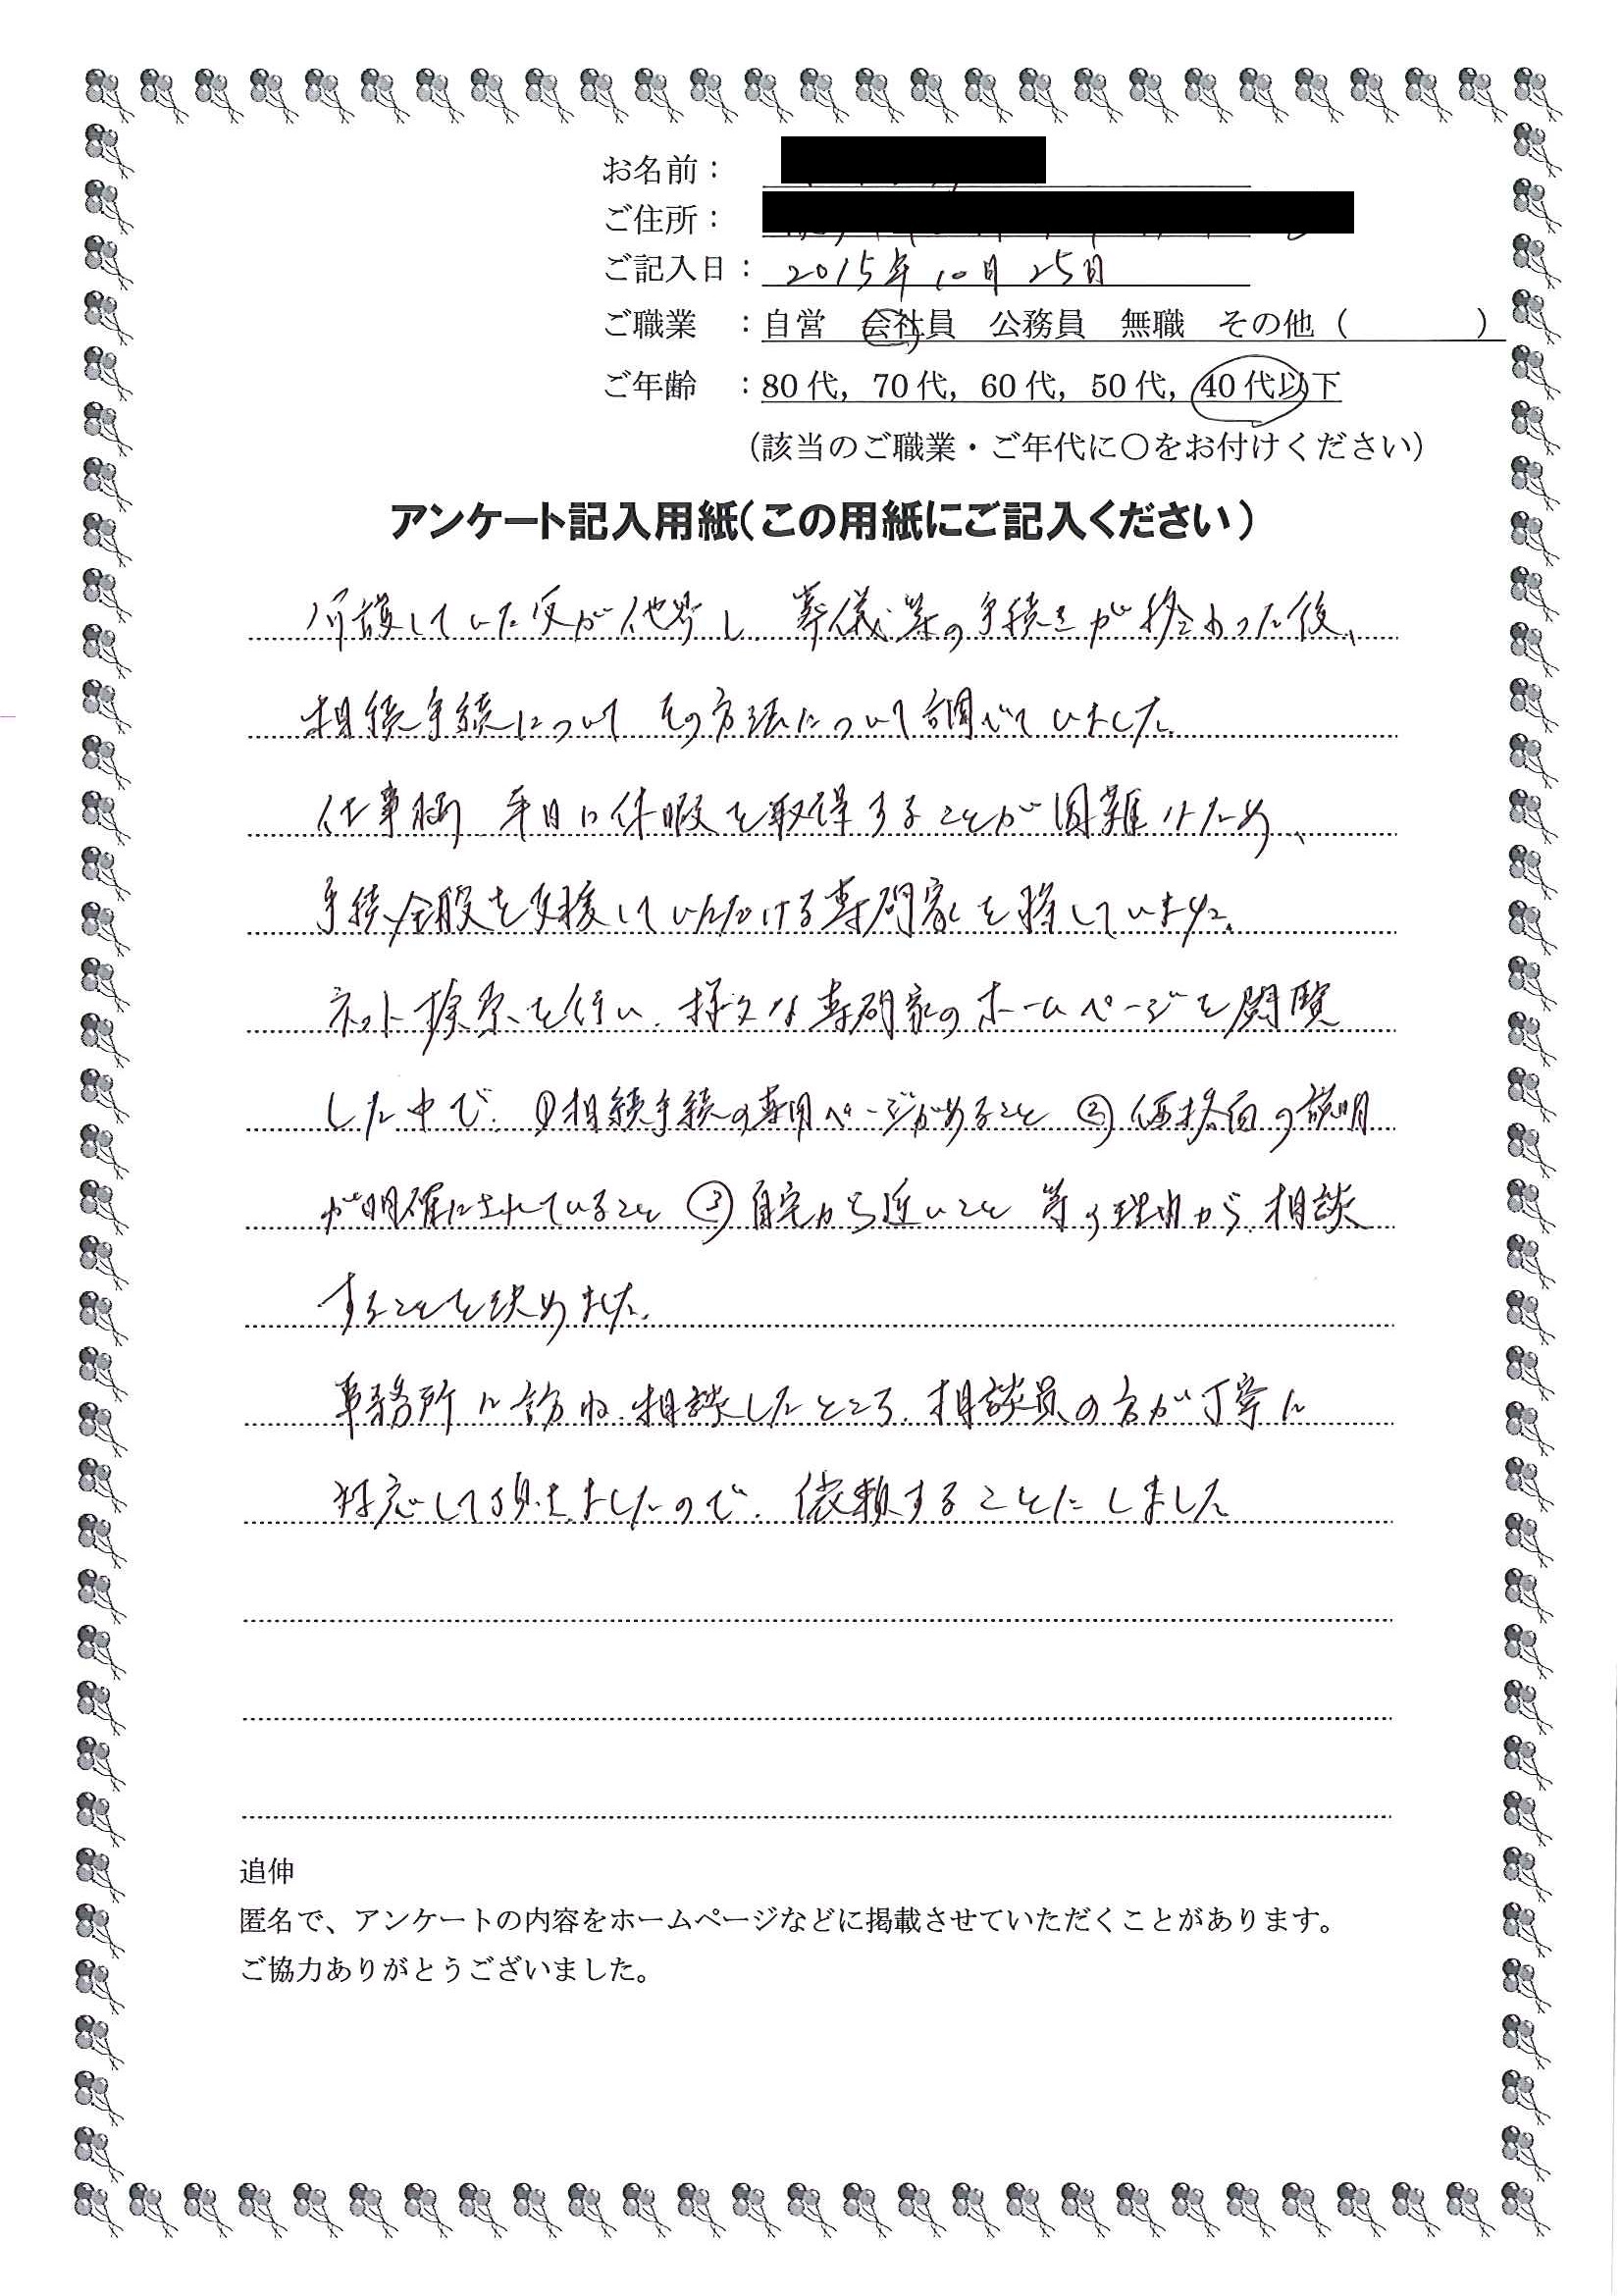 お名前：
ご住所：
ご記入日： 2015年10月25日
ご職業　：自営　会社員　公務員　無職　その他（　　　　）
ご年齢　：80代，70代，60代，50代，40代以下
（該当のご職業・ご年代に〇をお付けください）
アンケート記入用紙（この用紙にご記入ください）
介護していた父が他界し、葬儀等の手続きが終わった後、
相続手続について その方法について調べていました。
仕事柄、平日に休暇を取得することが困難なため、
手続全般を支援していただける専門家を探していました。
ネット検索を行い、様々な専門家のホームページを閲覧
した中で、①相続手続の専用ページがあること ②価格面の説明
が明確にされていること ③自宅から近いこと 等の理由から、相談
することを決めました。
事務所に訪ね、相談したところ、相談員の方が丁寧に
対応して頂きましたので、依頼することにしました
追伸
匿名で、アンケートの内容をホームページなどに掲載させていただくことがあります。
ご協力ありがとうございました。